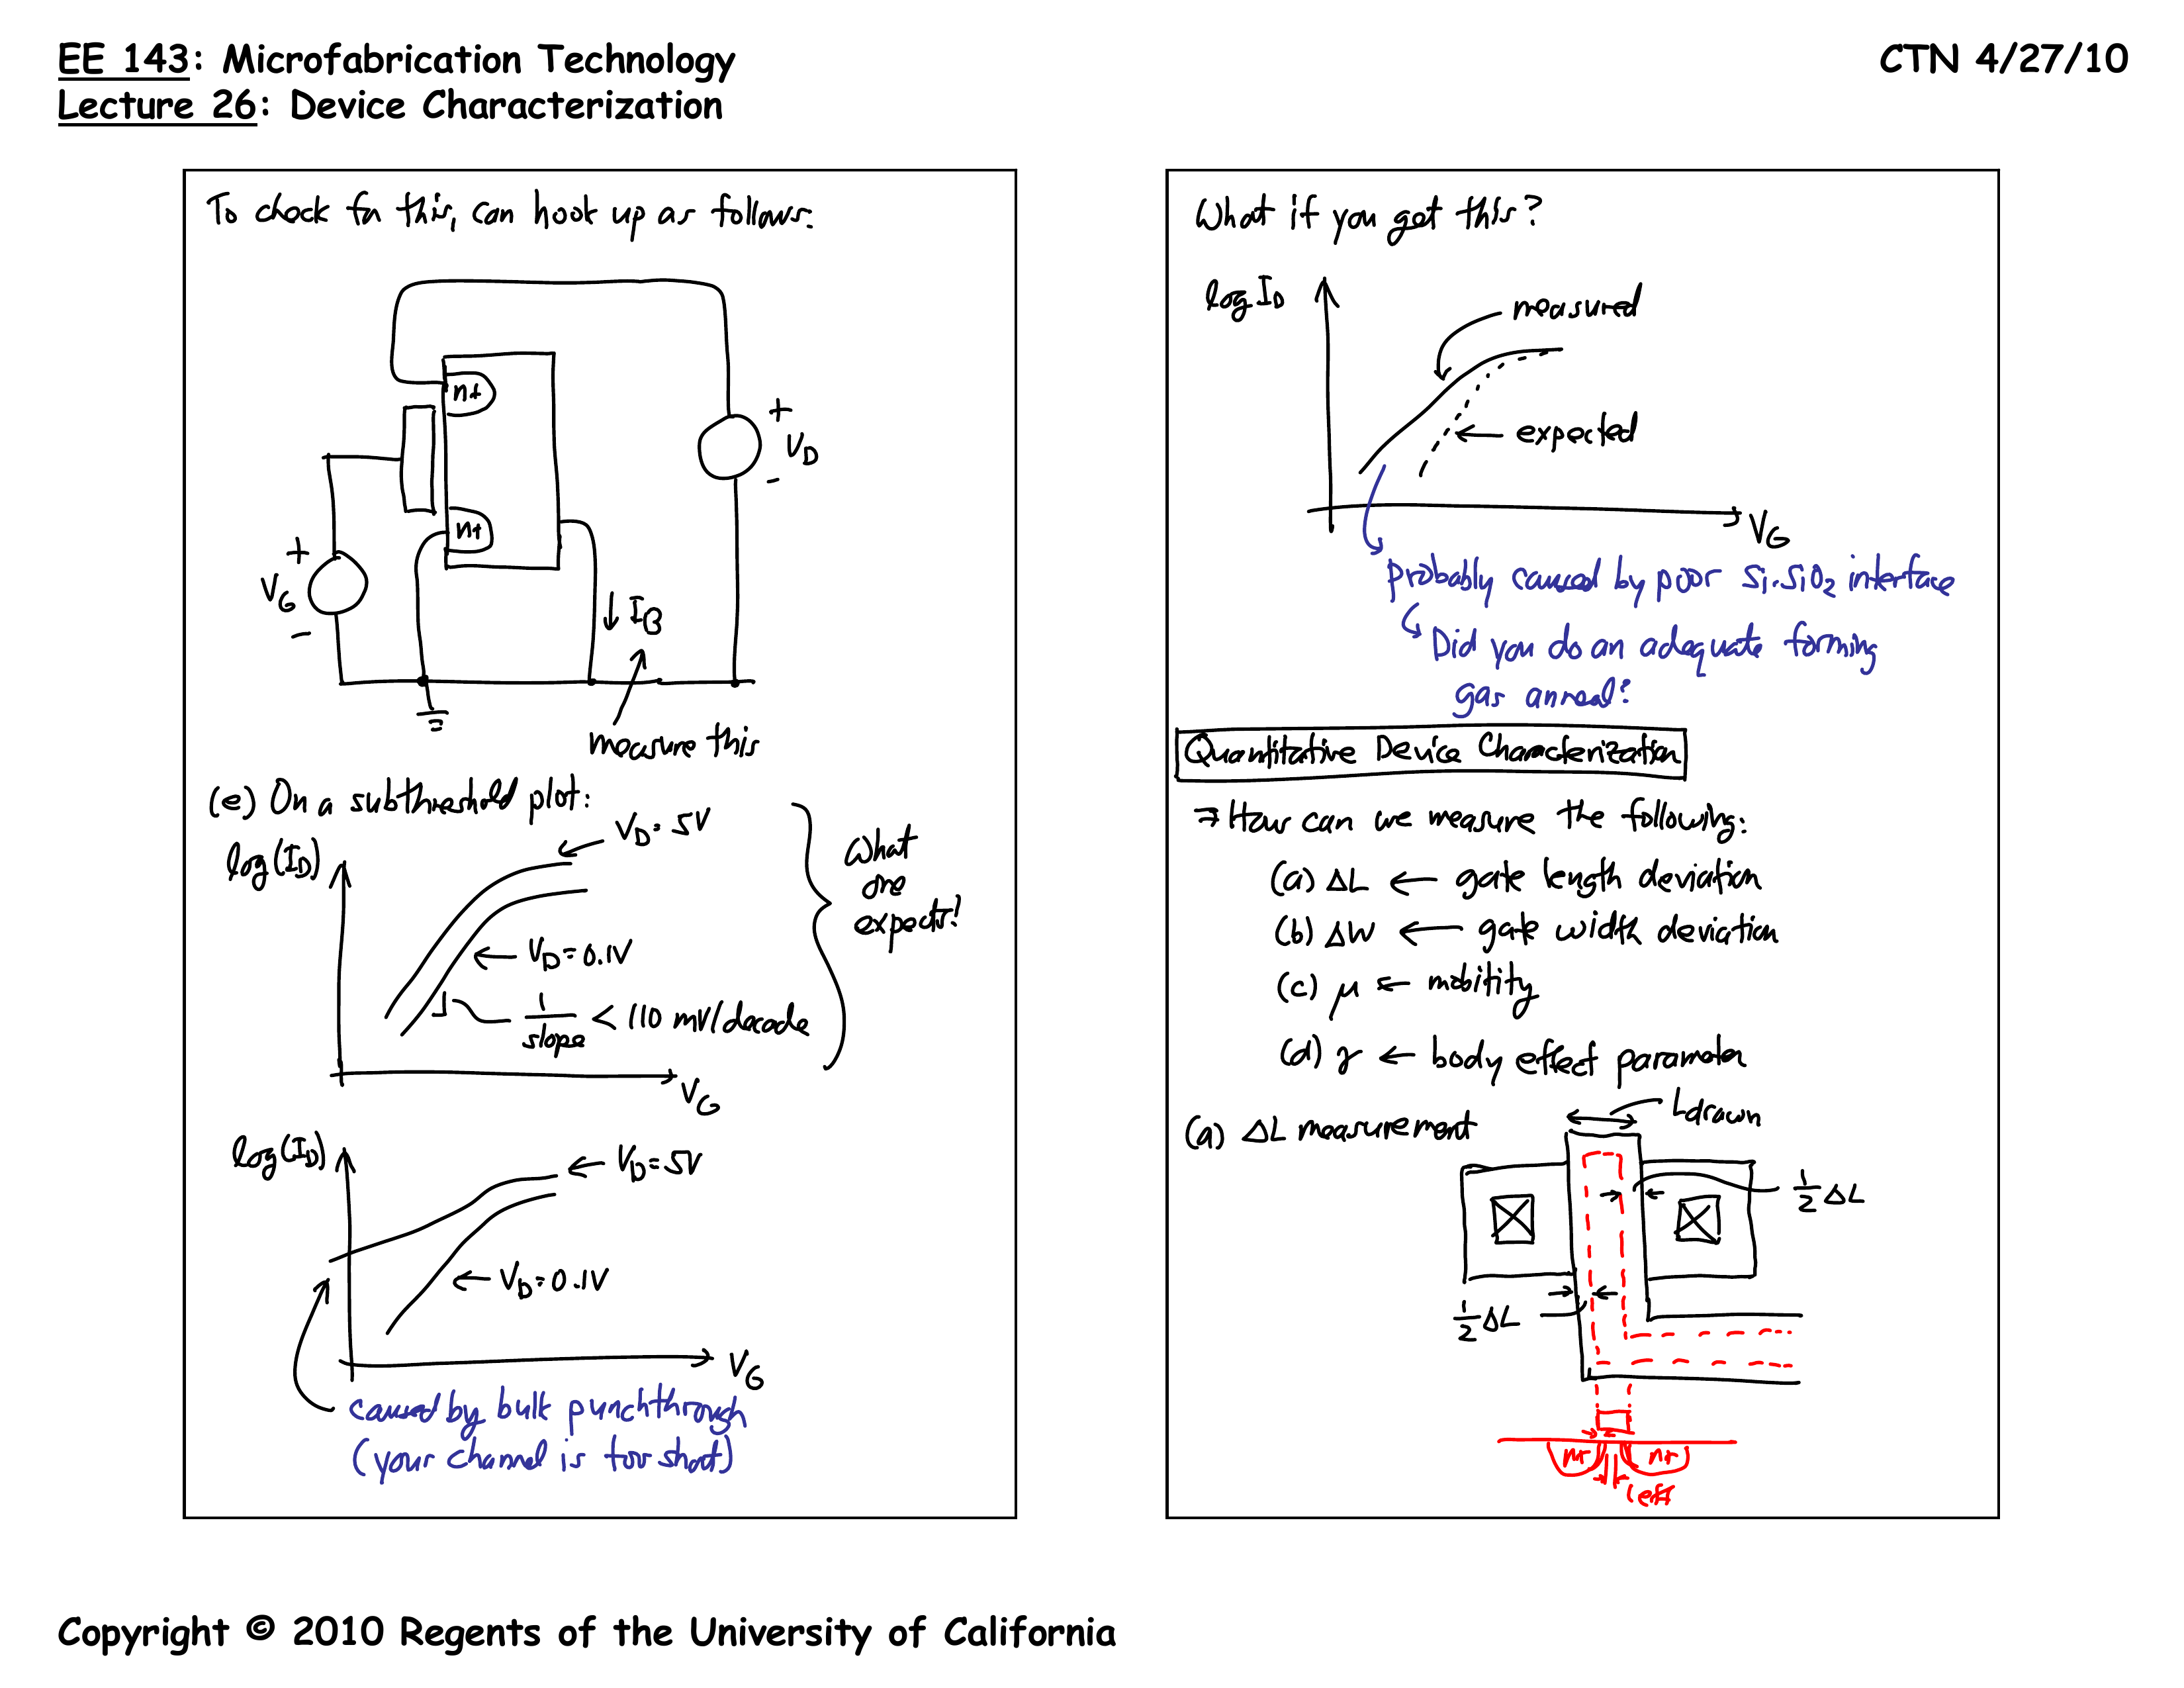 EE 143: Microfabrication Technology
Lecture 26: Device Characterization
CTN 4/27/10
To check for this, can hook up as follows:
n+
n+
+
VG
-
+
VD
-
↓ IB
measure this
(e) On a subthreshold plot:
log(ID)
VD = 5V
VD = 0.1V
1/slope < 110 mV/decade
VG
What
one
expects!
log(ID)
VD = 5V
VD = 0.1V
VG
caused by bulk punchthrough
(your channel is too short)
What if you got this?
log ID
measured
expected
VG
Probably caused by poor Si-SiO2 interface
Did you do an adequate forming
gas anneal?
Quantitative Device Characterization
⇒ How can we measure the following:
(a) ΔL ← gate length deviation
(b) ΔW ← gate width deviation
(c) μ ← mobility
(d) γ ← body effect parameter
(a) ΔL measurement
Ldrawn
1/2 ΔL
1/2 ΔL
n+
n+
Leff
Copyright © 2010 Regents of the University of California